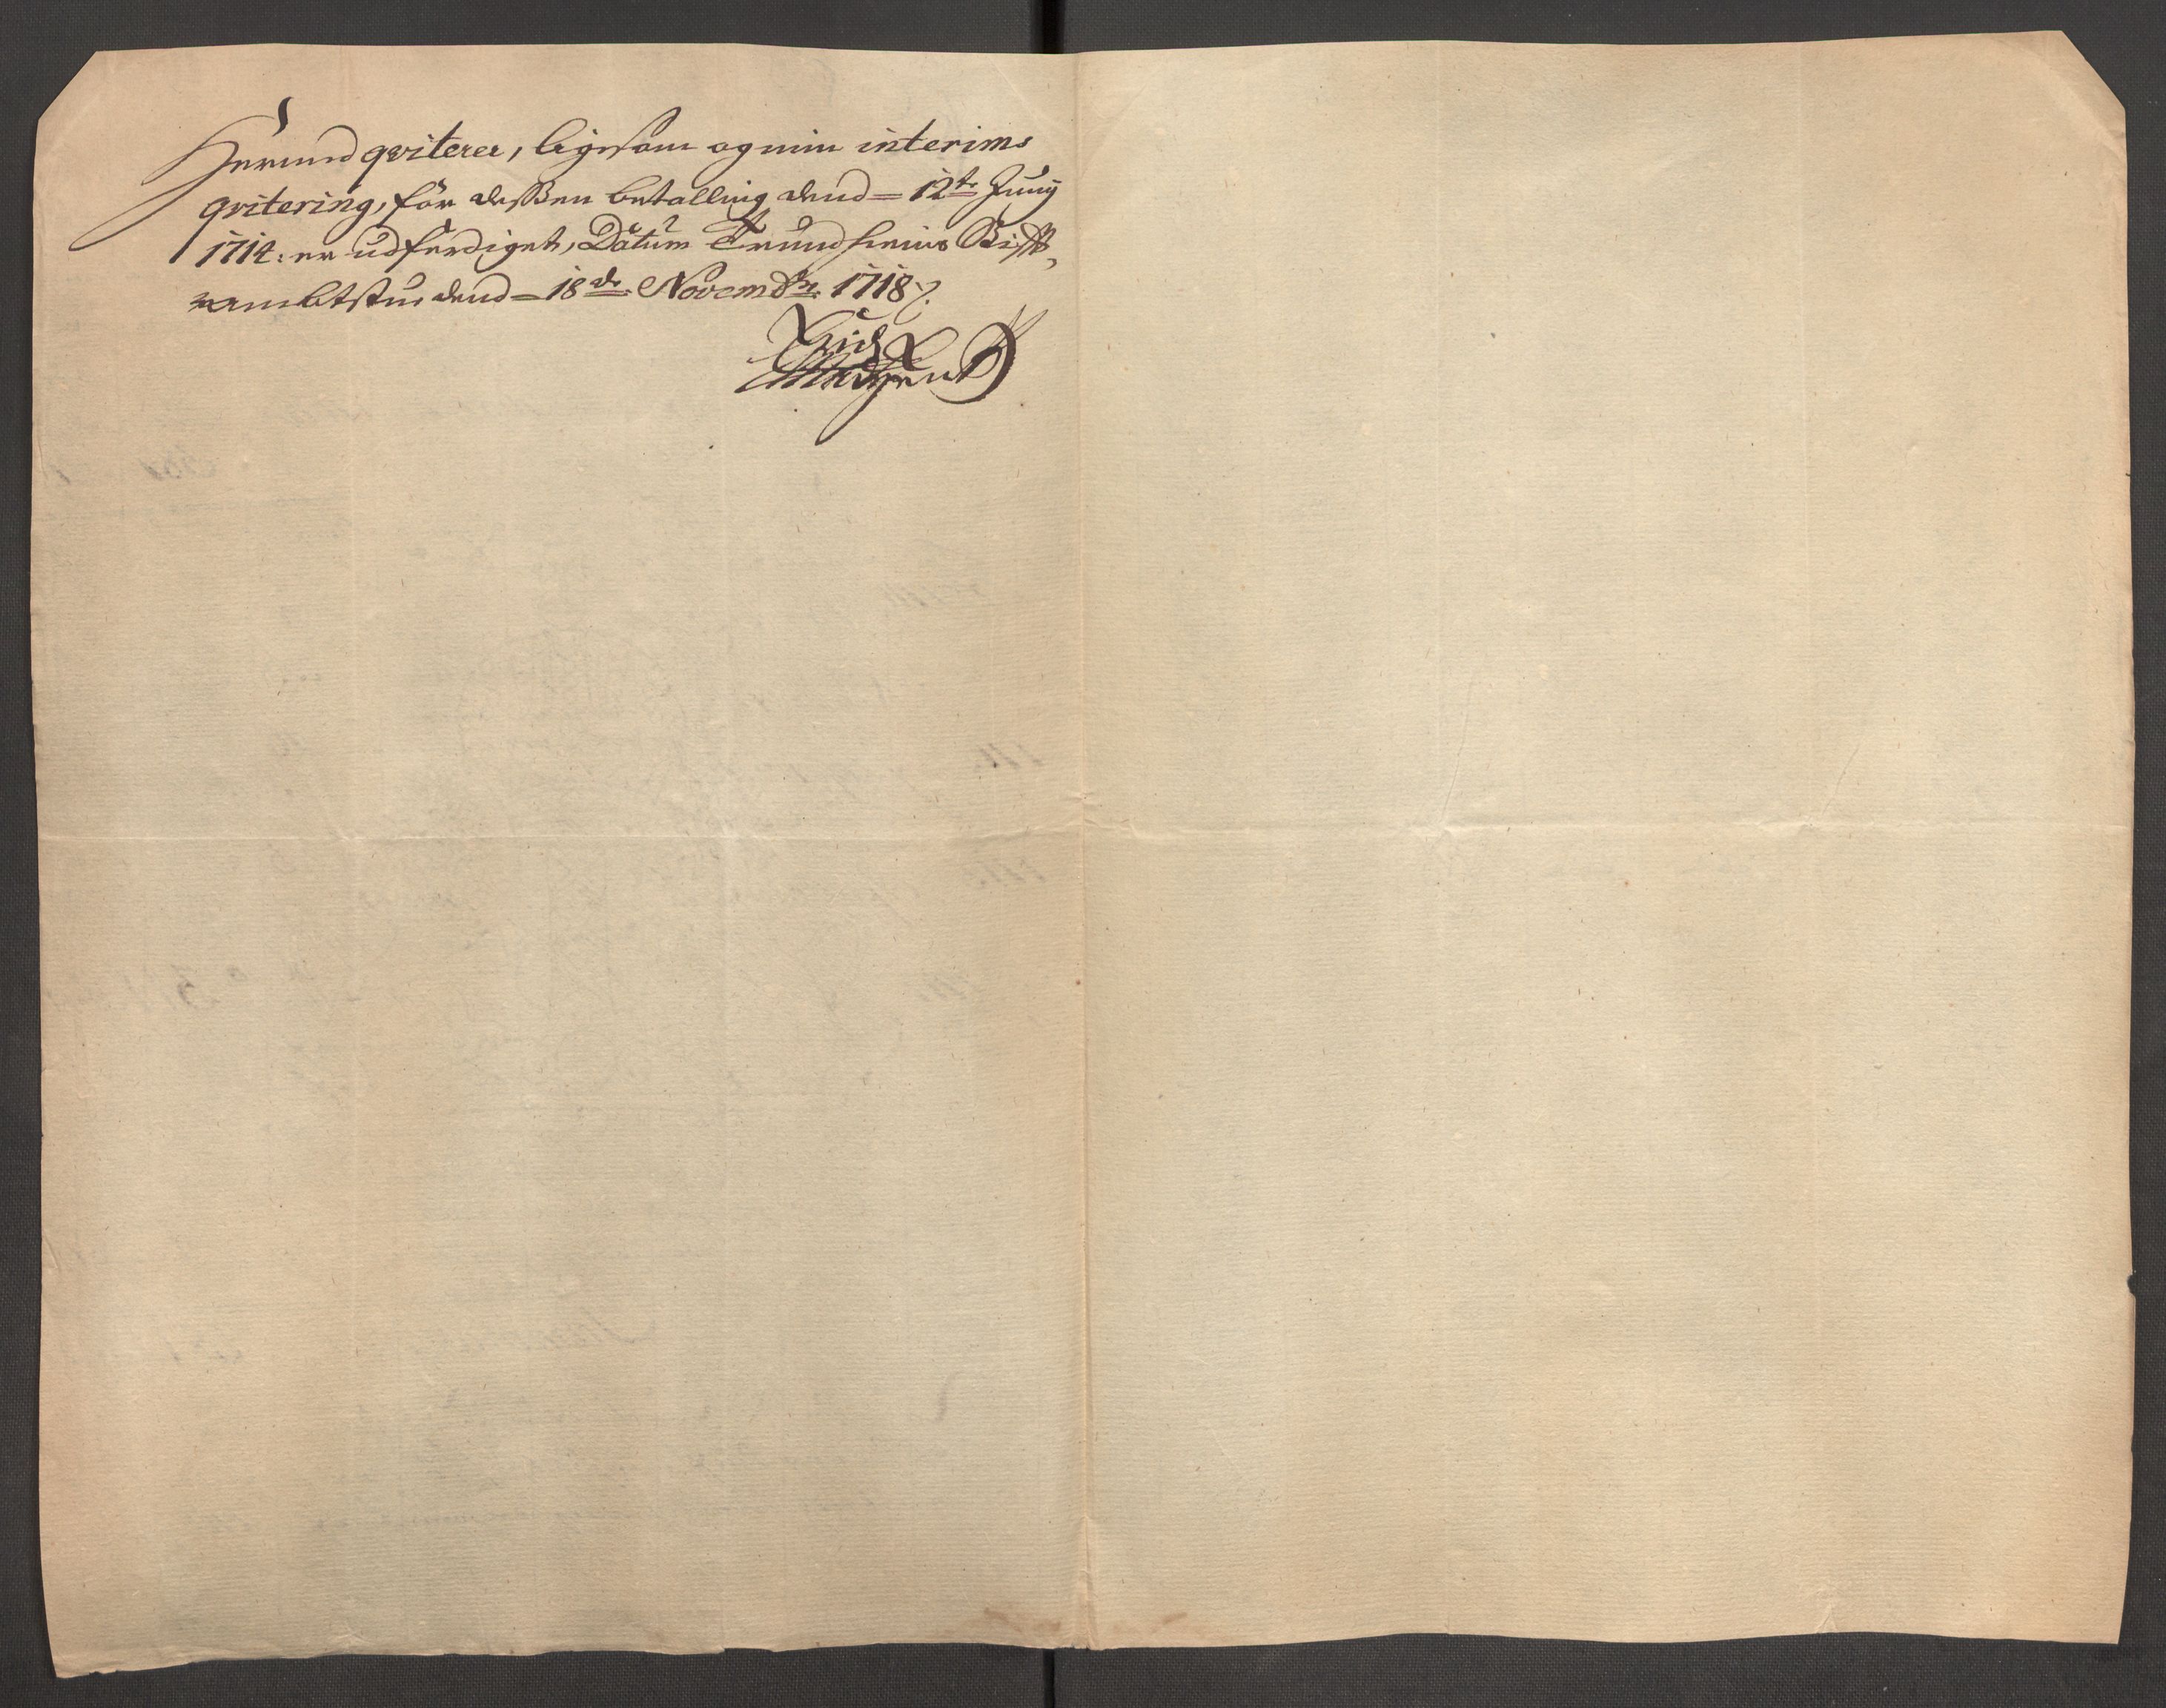 Hermed qviterer, ligesom og min interims
qvitering, for dessen betalling dend = 12te Junÿ
1714: er udferdiget, Datum Trundhiems Stifft,
ambtstue dend = 18de Novembr: 1718 ⁒
Erich